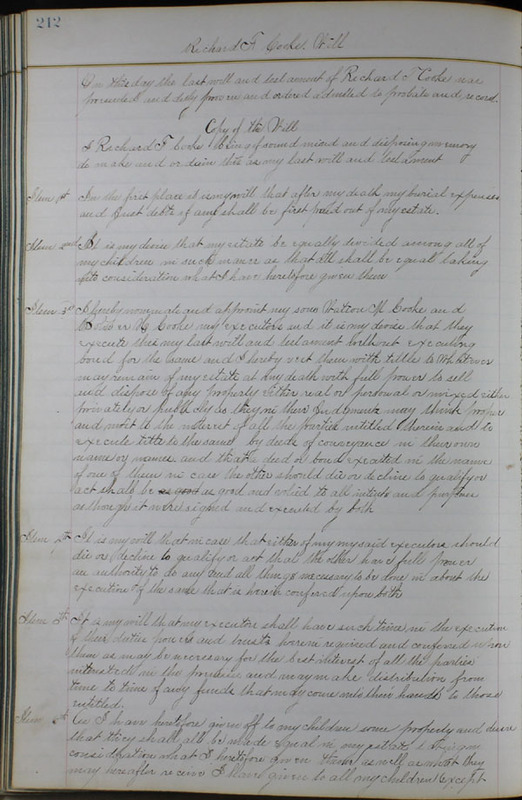 212
Richard F. Cocke Will
On this day the last will and testament of Richard F Cocke was
presented and duly proven and ordered admitted to probate and record.
Copy of the Will
I Richard F Cocke being of sound mind and disposing memory
do make and ordain this as my last will and testament
Item 1st In the first place it is my will that after my death my burial expenses
and just debts if any shall be first paid out of my estate.
Item 2nd It is my desire that my estate be equally devided among all of
my children in such maner as that all shall be equal taking
into consideration what I have heretofore given them
Item 3rd I hereby nominate and appoint my sons M Cocke and
Cocke my executors and it is my desire that they
execute this my last will and testament without executing
bond for the same and I hereby vest them with title to Whatever
may remain of my estate at my death with full power to sell
and dispose of any property either real or personal or mixed either
privately or publickly as they in their judgment may think proper
and most to the interest of all the parties intitled therein and to
execute title to the same by deeds of conveyance in their own
name or names and that a deed or bond executed in the name
of one of them in case the other should die or decline to qualify or
act shall be as good as good and valid to all intents and purposes
as though it were signed and executed by both
Item 4th It is my will that in case that either of my my said executors should
die or decline to qualify or act that the other have full power
an authority to do any and all things necessary to be done in about the
execution of the same that is herein confered upon both
Item 5th It is my will that my executor shall have such time in the execution
of their duties powers and trusts herein required and confered upon
them as may be necessary for the best interest of all the parties
interested in the premises and may make distribution from
time to time of any funds that may come into their hands to those
entitled.
Item 6th As I have heretofore given off to my children some property and desire
that they shall all be made equal in my estate
consideration what I heretofore given them as well as what they
may hereafter receive I have given to all my children except